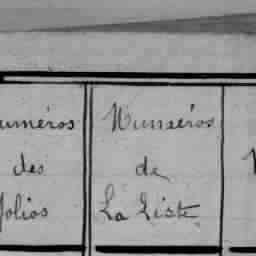 uméros
des
folios
Numéros
de
La Liste